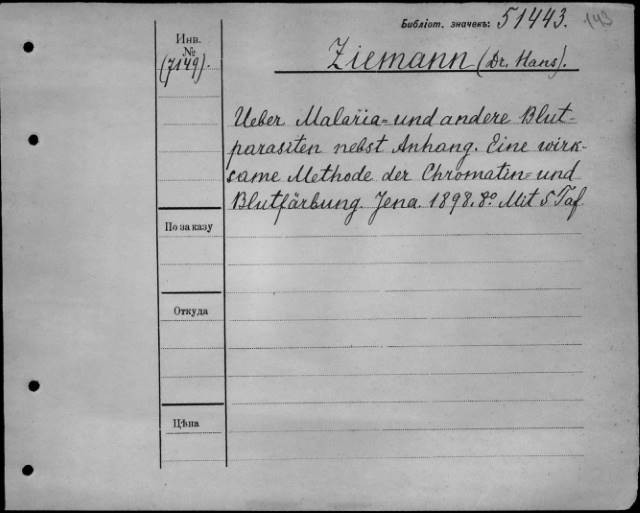 Библіот. значекъ: 51443. 143
Инв.
№
(7149).
Ziemann (Dr. Hans).
Ueber Malaria= und andere Blut-
parasiten nebst Anhang. Eine wirk-
same Methode der Chromatin= und
Blutfärbung. Jena. 1898. 8º. Mit 5 Taf.
По заказу
Откуда
Цѣна